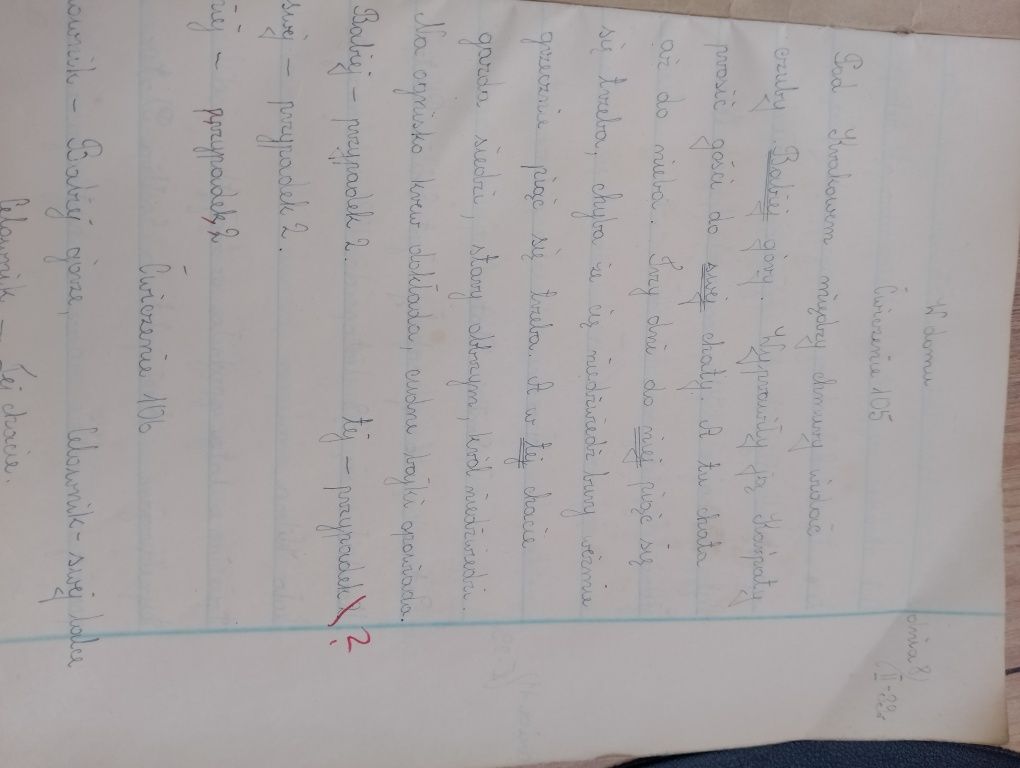 W domu
dnia 8)
II-
Ćwiczenie 105
Pod Krakowem między chmury widać
czuby Babiej góry. Wyprawiły ją Karpaty
prosić gości do swej chaty. A ta chata
aż do nieba. Trzy dni do niej piąć się
się trzeba, chyba że cię niedźwiedź bury weźmie
grzecznie piąć się trzeba. A w tej chacie
gazda siedzi, stary olbrzym, król niedźwiedzi.
Na ognisko krzew dokłada, cudne bajki opowiada.
Babiej - przypadek 2. tej - przypadek ?
swej - przypadek 2.
niej - przypadek 2
Ćwiczenie 106
Celownik - Babiej górze, Celownik - swej
Celownik - tej chacie.